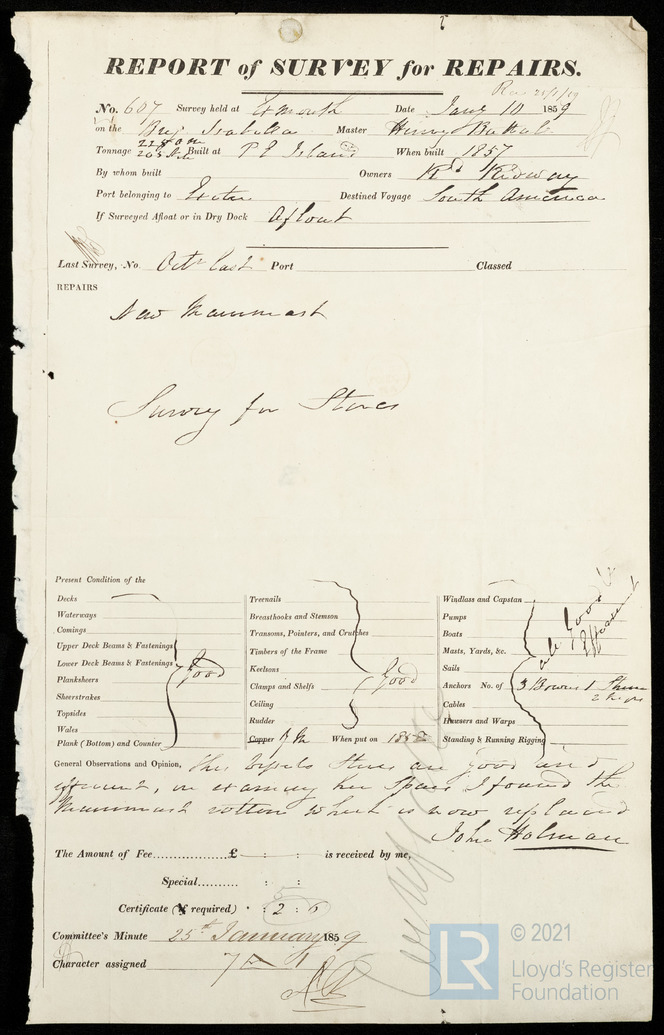 REPORT of SURVEY for REPAIRS.
Rec 25/1/59
No. 607 Survey held at Exmouth Date Jany 10 1859
on the Brig Isabella Master Henry
Tonnage Built at P E Island When built 1857
By whom built Owners Rd Ridway
Port belonging to Exeter Destined Voyage South America
If Surveyed Afloat or in Dry Dock Afloat
Last Survey, No. Octr last Port Classed
REPAIRS
New Mainmast
Survey for Stores
Present Condition of the
Decks
Waterways
Comings
Upper Deck Beams & Fastenings
Lower Deck Beams & Fastenings
Planksheers
Sheerstrakes
Topsides
Wales
Plank (Bottom) and Counter
Good
Treenails
Breasthooks and Stemson
Transoms, Pointers, and Crutches
Timbers of the Frame
Keelsons
Clamps and Shelfs
Ceiling
Rudder
Copper Y M When put on 1858
Good
Windlass and Capstan
Pumps
Boats
Masts, Yards, &c.
Sails
Anchors No. of 3 Bowers 1 Stream
Cables
Hawsers and Warps
Standing & Running Rigging
all Good &
Efficient
General Observations and Opinion, This vessels Stores are good and
efficient, on examing her Spars I found the
Mainmast rotten which is now replaced
John Holman
The Amount of Fee £ : : is received by me,
Special : :
Certificate (if required) : 2 : 6
Committee's Minute 25th January 1859
Character assigned 7 A 1
© 2021
LR
Lloyd's Register
Foundation